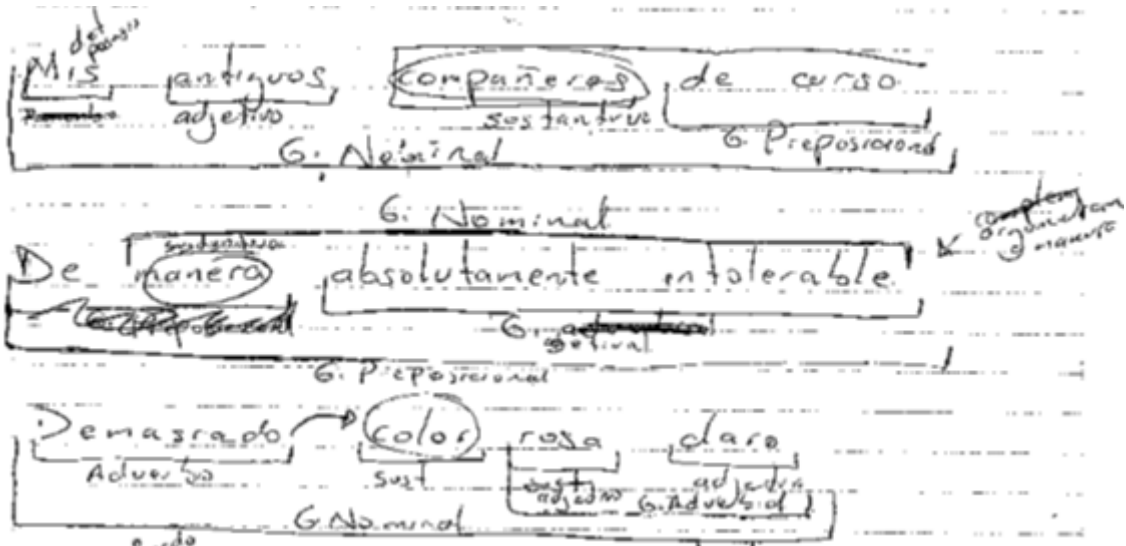 det posesivo
Mis antiguos compañeros de curso
adjetivo sustantivo G. Preposicional
G. Nominal
G. Nominal
sustantivo
De manera absolutamente intolerable
G.
G. Preposicional
Demasiado color rosa claro
Adverbio sust adjetivo adjetivo
G. Adverbial
G. Nominal